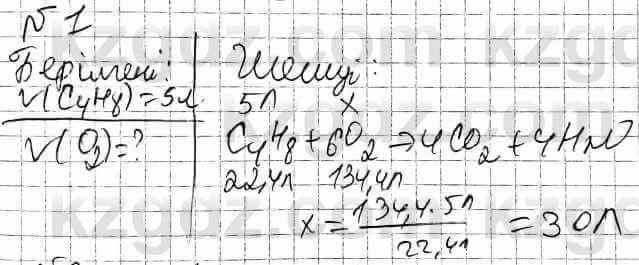 №1
Берілгені:
V(C₄H₈)=5л
V(O₂)=?
Шешуі:
5л x
C₄H₈+6O₂→4CO₂+4H₂O
22,4л 134,4л
x=134,4·5л/22,4л=30л